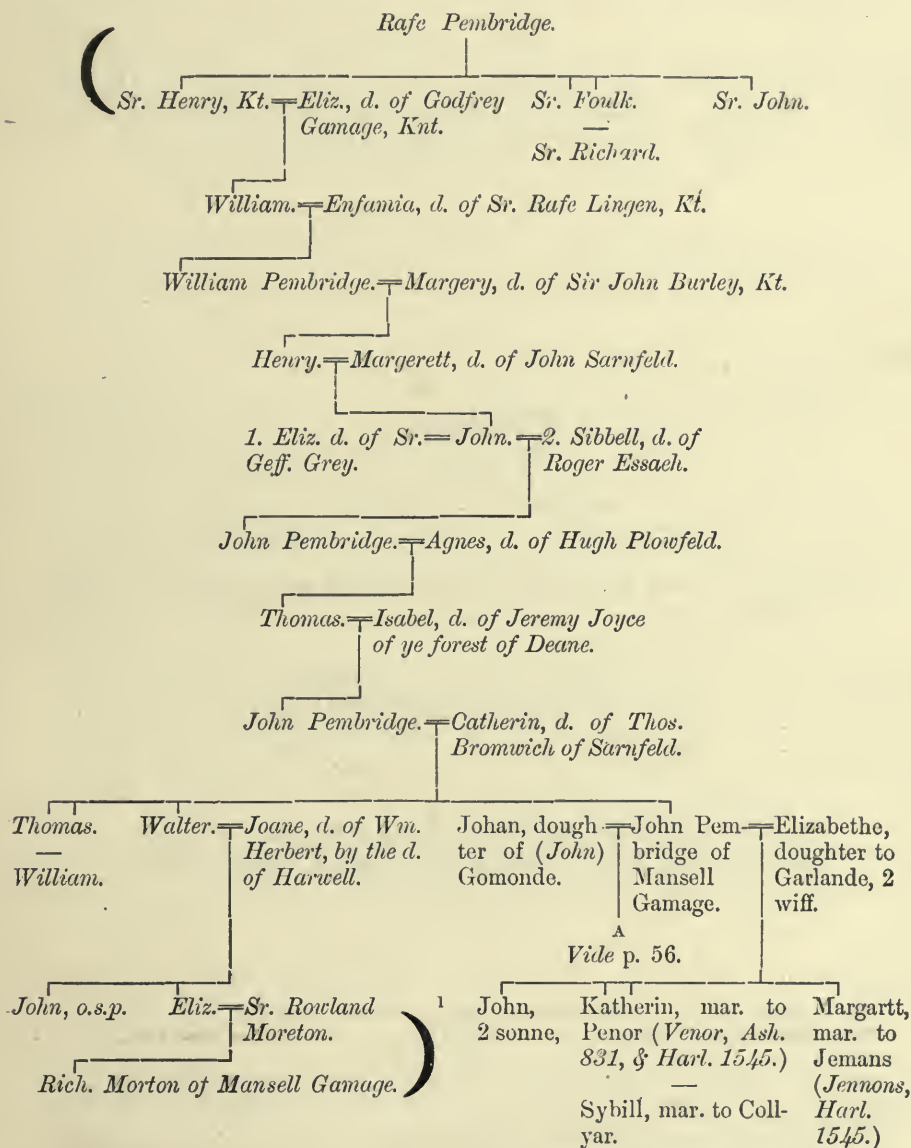 Rafe Pembridge.
Sr. Henry, Kt. Eliz., d. of Godfrey Gamage, Knt. Sr. Foulk. — Sr. Richard. Sr. John.
William. Enfamia, d. of Sr. Rafe Lingen, Kt.
William Pembridge. Margery, d. of Sir John Burley, Kt.
Henry. Margerett, d. of John Sarnfeld.
1. Eliz. d. of Sr. Geff. Grey. John. 2. Sibbell, d. of Roger Essaeh.
John Pembridge. Agnes, d. of Hugh Plowfeld.
Thomas. Isabel, d. of Jeremy Joyce
of ye forest of Deane.
John Pembridge. Catherin, d. of Thos.
Bromwich of Sarnfeld.
Thomas. — William.
Walter. Joane, d. of Wm.
Herbert, by the d.
of Harwell.
Johan, dough
ter of (John)
Gomonde.
John Pem-
bridge of
Mansell
Gamage.
Elizabethe,
doughter to
Garlande, 2
wiff.
A
Vide p. 56.
John, o.s.p. Eliz. Sr. Rowland
Moreton.
Rich. Morton of Mansell Gamage.
1
John,
2 sonne,
Katherin, mar. to
Penor (Venor, Ash.
831, & Harl. 1545.)
—
Sybill, mar. to Coll-
yar.
Margartt,
mar. to
Jemans
(Jennons,
Harl.
1545.)